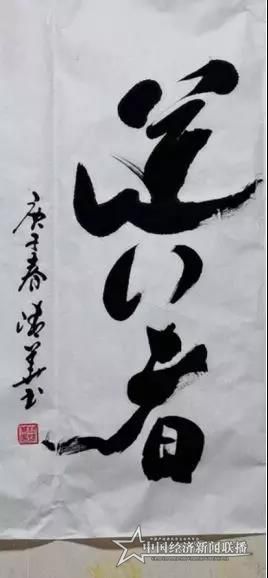 逆行者
庚子春 书
中国经济新闻联播